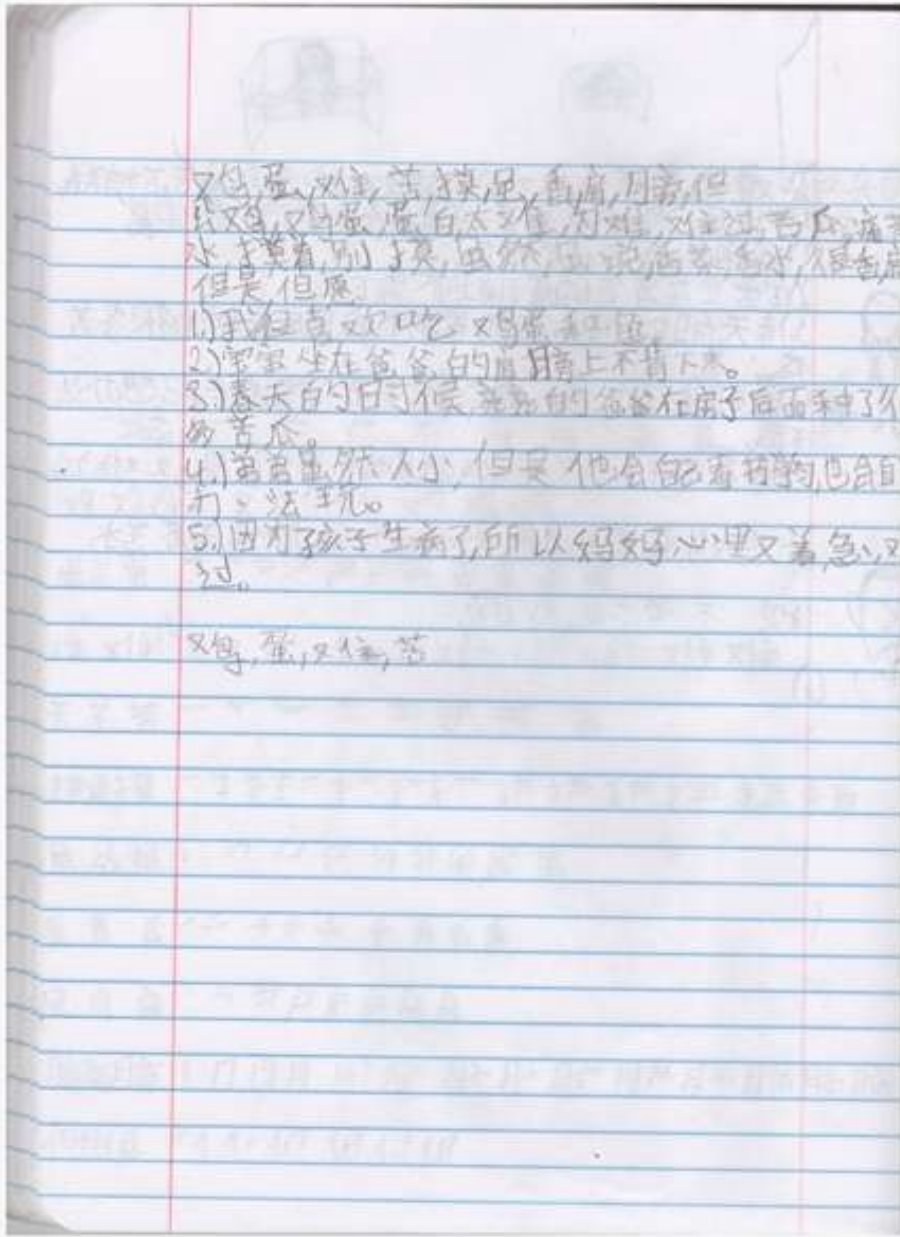 鸡,蛋,难,苦,摸,虽,香,肩,膀,但
鸡,鸡蛋,蛋白,太难,为难,难过,苦瓜,痛苦
水,摸着,别摸,虽然,虽说,香蕉,香水,很香,肩
但是,但愿
1.)我很喜欢吃鸡蛋
2.)宝宝坐在爸爸的肩膀上不肯下来。
3.)春天的时候,亮亮的爸爸在房子后面种了很
的苦瓜。
4.)弟弟虽然人小,但是他会自己看书学,也会自
玩。
5.)因为孩子生病了,所以妈妈心里又着急,又
过。
鸡,蛋,难,苦